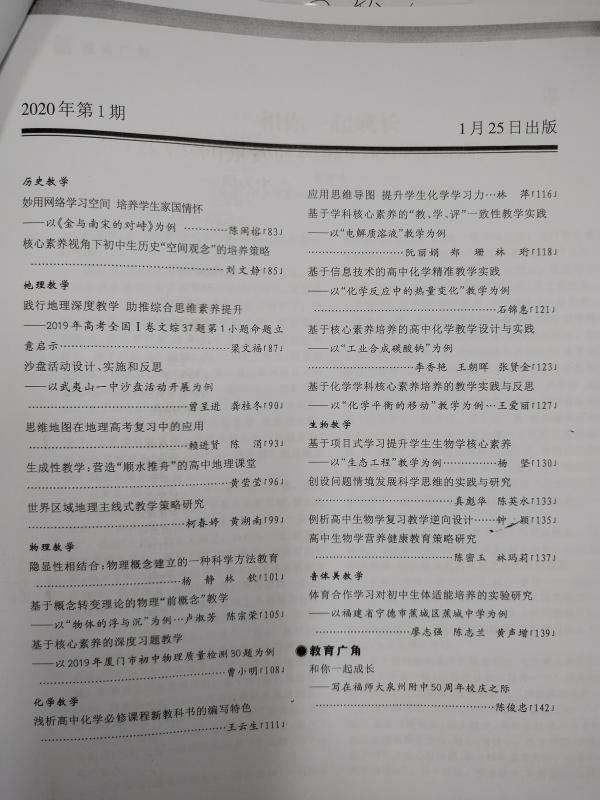 2020年第1期
1月25日出版
历史教学
妙用网络学习空间 培养学生家国情怀
——以《金与南宋的对峙》为例 ……………陈闽榕「83」
核心素养视角下初中生历史“空间观念”的培养策略
……………………………………刘文静「85」
地理教学
践行地理深度教学 助推综合思维素养提升
——2019年高考全国Ⅰ卷文综37题第1小题命题立
意启示……………………………梁文福「87」
沙盘活动设计、实施和反思
——以武夷山一中沙盘活动开展为例
……………………………曾呈进 龚桂冬「90」
思维地图在地理高考复习中的应用
……………………………赖进贤 陈 涓「93」
生成性教学:营造“顺水推舟”的高中地理课堂
……………………………………黄莹莹「96」
世界区域地理主线式教学策略研究
……………………………柯春婷 黄湖南「99」
物理教学
隐显性相结合:物理概念建立的一种科学方法教育
……………………………杨 静 林 钦「101」
基于概念转变理论的物理“前概念”教学
——以“物体的浮与沉”为例…卢淑芳 陈宗荣「105」
基于核心素养的深度习题教学
——以2019年厦门市初中物理质量检测30题为例
……………………………………曹小明「108」
化学教学
浅析高中化学必修课程新教科书的编写特色
……………………………………王云生「111」
应用思维导图 提升学生化学学习力…林 萍「116」
基于学科核心素养的“教、学、评”一致性教学实践
——以“电解质溶液”教学为例
……………………阮丽娟 郑 珊 林 珩「118」
基于信息技术的高中化学精准教学实践
——以“化学反应中的热量变化”教学为例
……………………………………石锦惠「121」
基于核心素养培养的高中化学教学设计与实践
——以“工业合成碳酸钠”为例
……………………李香艳 王朝晖 张贤金「123」
基于化学学科核心素养培养的教学实践与反思
——以“化学平衡的移动”教学为例…王爱丽「127」
生物教学
基于项目式学习提升学生生物学核心素养
——以“生态工程”教学为例……………杨 坚「130」
创设问题情境发展科学思维的实践与研究
……………………………真彪华 陈英水「133」
例析高中生物学复习教学逆向设计……钟 颖「135」
高中生物学营养健康教育策略研究
……………………………陈密玉 林玛莉「137」
音体美教学
体育合作学习对初中生体适能培养的实验研究
——以福建省宁德市蕉城区蕉城中学为例
……………………廖志强 陈志兰 黄声增「139」
●教育广角
和你一起成长
——写在福师大泉州附中50周年校庆之际
……………………………………陈俊忠「142」